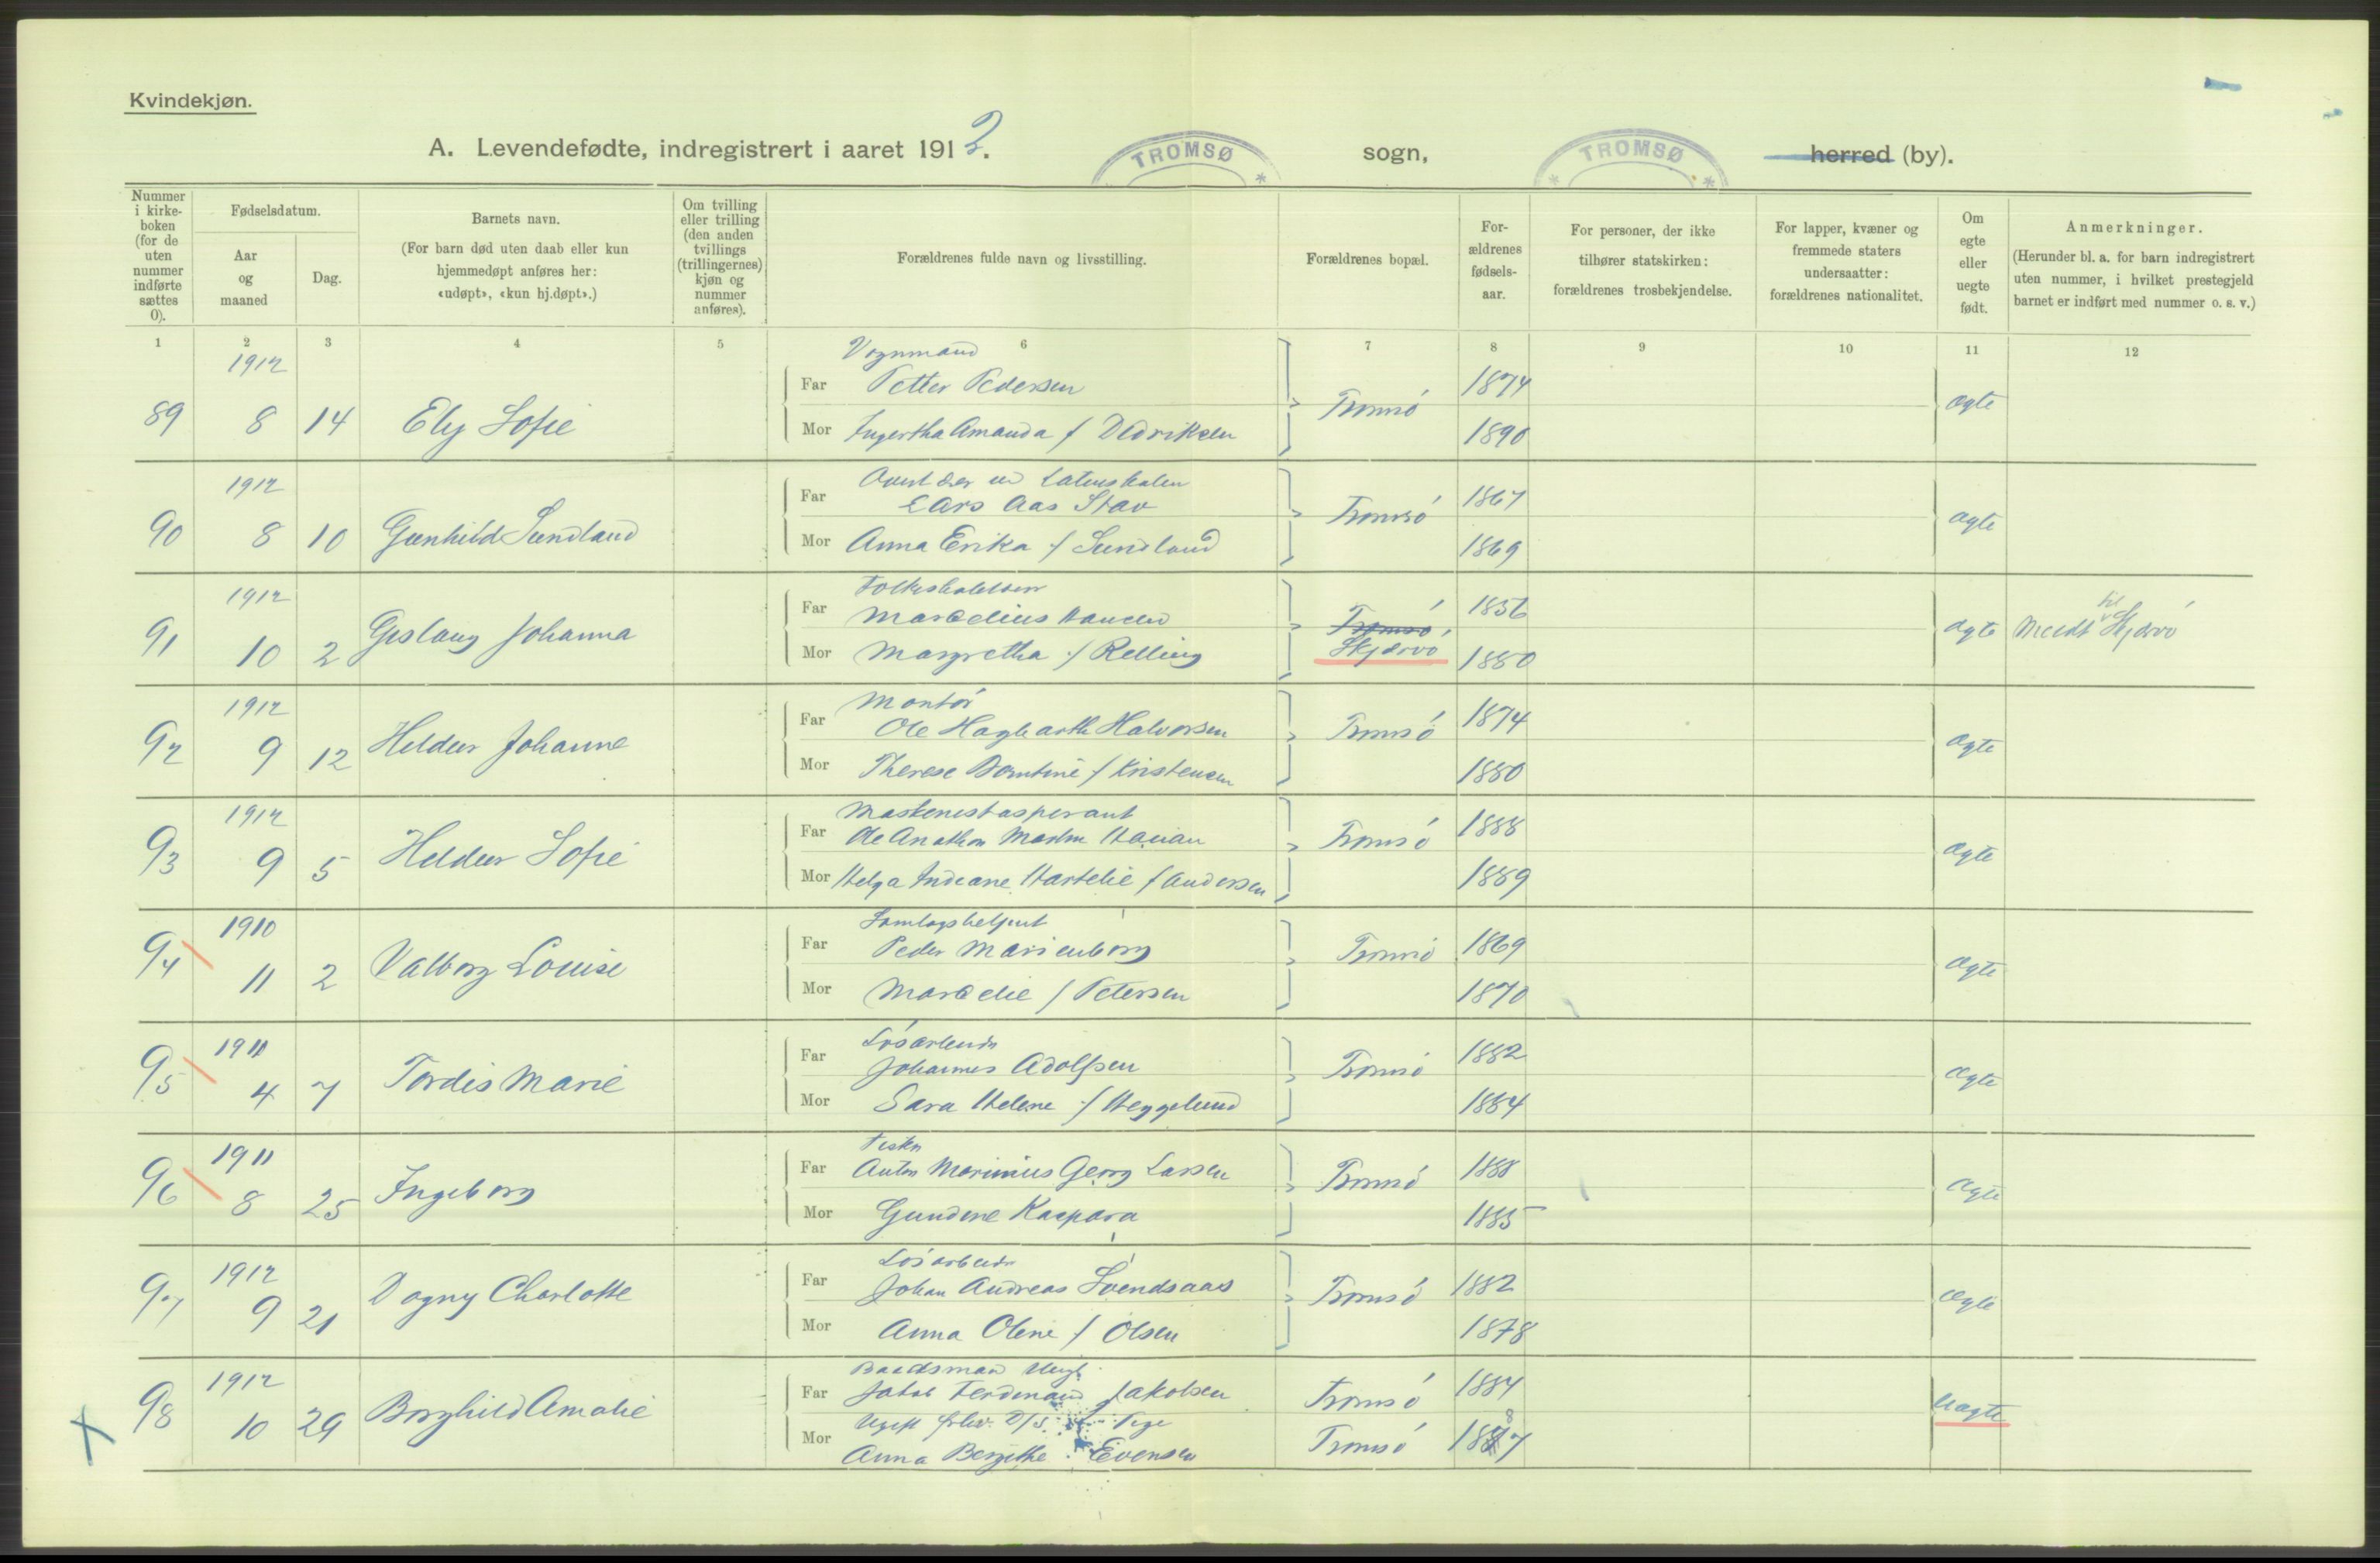 Kvindekjøn.
A. Levendefødte, indregistrert i aaret 1912. TROMSØ sogn, TROMSØ herred (by).
Nummer i kirke-boken (for de uten nummer indførte sættes 0).
Fødselsdatum.
Aar og maaned
Dag.
Barnets navn.
(For barn død uten daab eller kun hjemmedøpt anføres her: «udøpt», «kun hj.døpt».)
Om tvilling eller trilling (den anden tvillings (trillingernes) kjøn og nummer anføres).
Forældrenes fulde navn og livsstilling.
Forældrenes bopæl.
For-ældrenes fødsels-aar.
For personer, der ikke tilhører statskirken: forældrenes trosbekjendelse.
For lapper, kvæner og fremmede staters undersaatter: forældrenes nationalitet.
Om egte eller uegte født.
Anmerkninger.
(Herunder bl. a. for barn indregistrert uten nummer, i hvilket prestegjeld barnet er indført med nummer o. s. v.)
1 2 3 4 5 6 7 8 9 10 11 12
1912 Vognmand
Far Petter Pedersen 1874
89 8 14 Ely Sofie Tromsö ægte
Mor Ingertha Amanda f Dedriksen 1890
1912
Far Lars Aas Stav 1867
90 8 10 Gunhild Sundland Tromsö ægte
Mor Anna Erika f Sundland 1869
1912
Far Marselius Hansen 1856
91 10 2 Gislaug Johanna Tromsö Skjervö ægte Meldt til Skjervö
Mor Margretha f Relling 1880
1912 Montör
Far Ole Hagbarth Halvorsen 1874
92 9 12 Heldur Johanne Tromsö ægte
Mor Therese Berntine f Kristensen 1880
1912 Maskinistaspirant
Far Ole Anathon Martin 1888
93 9 5 Heldur Sofie Tromsö ægte
Mor Helga Indiane f Andersen 1889
1910 Samlagsbetjent
Far Peder Marienborg 1869
94 11 2 Valborg Louise Tromsö ægte
Mor Marselie f Petersen 1870
1911 Lösarbeider
Far Johannes Adolfsen 1882
95 4 7 Tordis Marie Tromsö ægte
Mor Sara Helene f Heggelund 1884
1911 Fisker
Far Anton Marinius Georg Larsen 1888
96 8 25 Ingeborg Tromsö ægte
Mor Gundine Kaspara 1885
1912 Lösarbeider
Far Johan Andreas Svendsaas 1882
97 9 21 Dagny Charlotte Tromsö ægte
Mor Anna Oline f Olsen 1878
1912 Baadsmand Ungk.
Far Jakob Ferdinand Jakobsen Tromsö 1884
98 10 29 Borghild Amalie Uægte
Ugift Pige
Mor Anna Bergithe Evensen Tromsö 1887